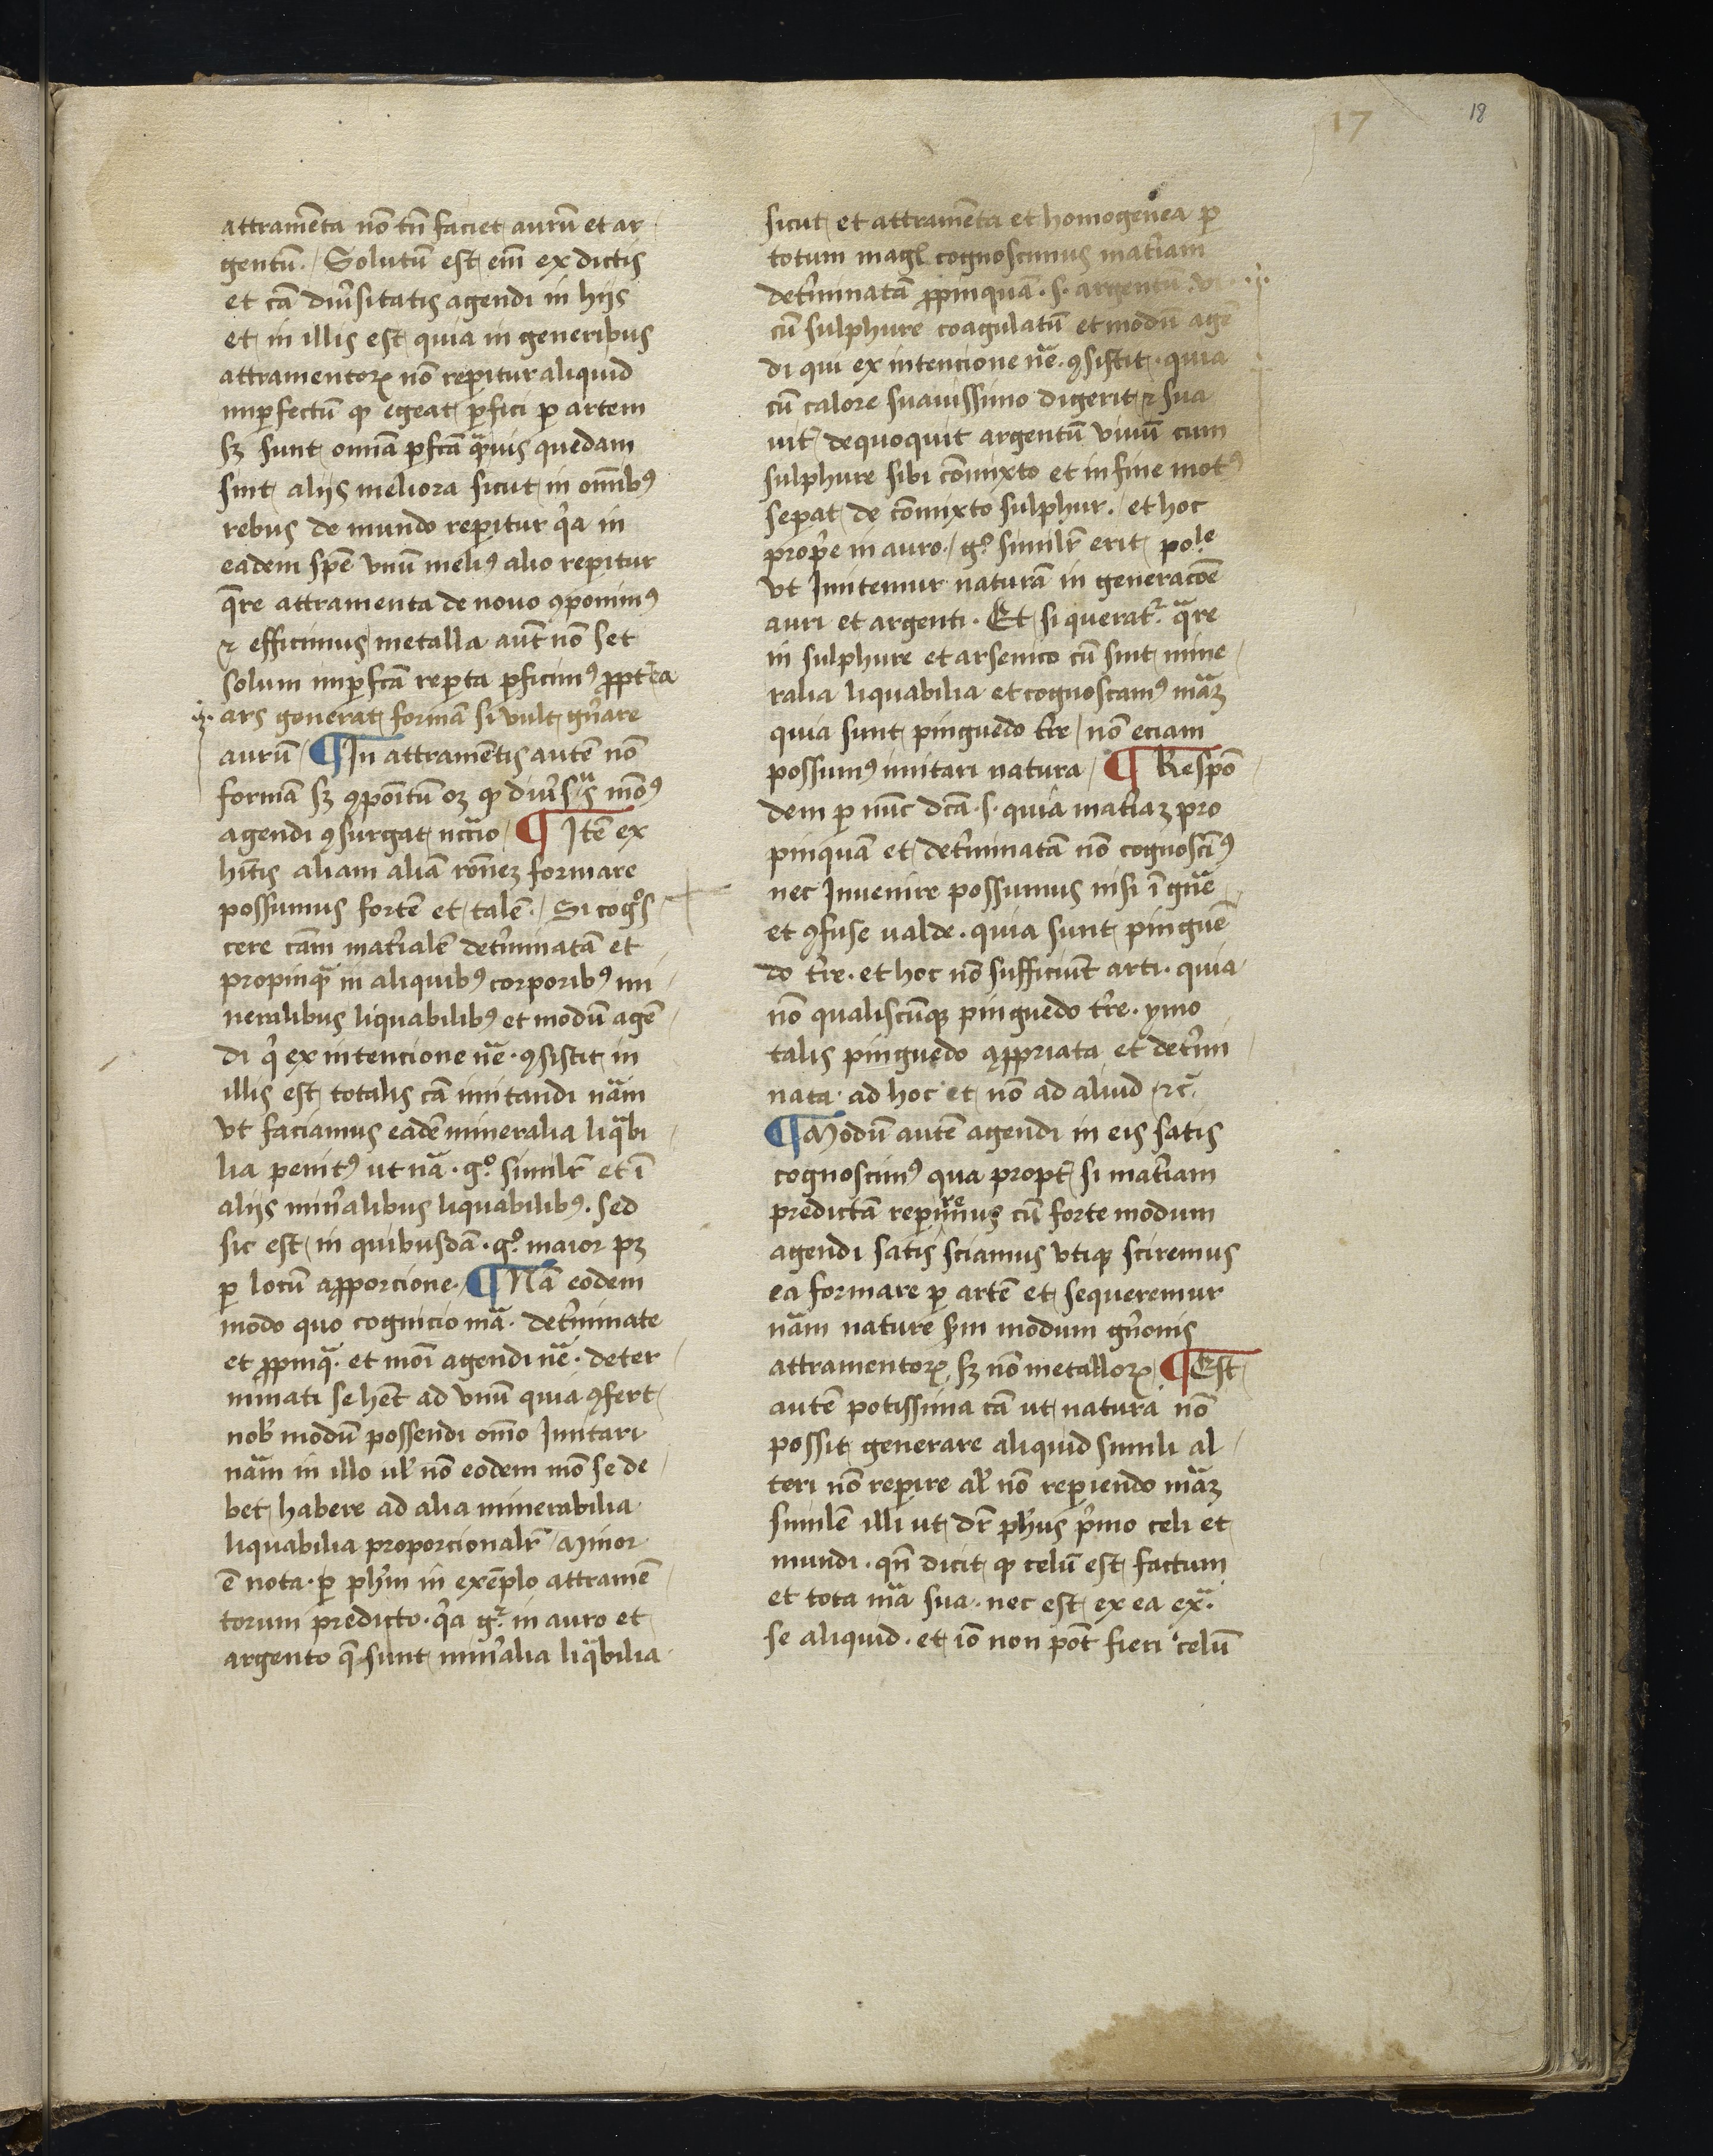 17
18
attramēta nō tn̄ faciet aurū et ar
gentū. Solutū est em̄ ex dictis
et cā diuˀsitatis agendi in hijs
et in illis est quia in generibus
attramentoꝝ nō reꝑitur aliquid
imꝑfectū qꝫ egeat ꝑfici ꝑ artem
sꝫ sunt omīa ꝑfcā qᵃmuis quedam
sint alijs meliora sicut in omībꝰ
rebus de mundo reꝑitur qⁱa in
eadem spē vnū meliꝰ alio reꝑitur
qᵃre attramenta de nouo ꝯponimꝰ
⁊ efficimus metalla aut̄ nō set
solum imꝑfcā reꝑta ꝑficimꝰ ꝓpt̄ea
ars generat formā si vult gn̄are
aurū ¶ In attramētis autē nō
formā sꝫ ꝯpoītū oꝫ qꝫ diuˀsᵃs mōꝰ
agendi ꝯsurgat nccͣio ¶ Itē ex
hītis aliam aliā rōneꝫ formare
possumus fortē et talē. Si cogᵒs
cere cām matˀialē detˀminatā et
propinqᵃ in aliquibꝰ corporibꝰ mi
neralibus liquabilibꝰ et modū agē
di qⁱ ex intencione nᵃe. ꝯsistit in
illis est totalis cā imitandi nᵃm
vt faciamus eadē mineralia liqᵃbi
lia penitꝰ ut nᵃ. gᵒ similr̄ et ī
alijs minˀalibus liquabilibꝰ. sed
sic est in quibusdā. gᵒ maior pꝫ
ꝑ locū a ꝓporcione. ¶ Nā eodem
modo quo cognicio mᵃ. detˀminate
et ꝓpinqᵃ. et moī agendi nᵃe. deter
minati se hn̄t ad vnū quia ꝯfert
nobˀ modū possendi omīo Imitari
nᵃm in illo ul̄ nō eodem mō se de
bet habere ad alia minerabilia
liquabilia proporcionalr̄ Minor
ē nota. ꝑ ph̄m in exēplo attramē
torum predicto. qⁱa gᵒ in auro et
argento q̄ sunt minˀalia liqᵃbilia
sicut et attramēta et homogenea ꝑ
totum magl̄ cognoscimus matˀiam
detˀminatā ꝓpinquā. s. argentū vi
cū sulphure coagulatū et modū agē
di qui ex intencione nᵃe. ꝯsistit. quia
cū calore suauissimo digerit ⁊ sua
uit̄ dequoquit argentū viuū cum
sulphure sibi cōmixto et in fine motꝰ
seꝑat de cōmixto sulphur. et hoc
proprˀe in auro. gᵒ similr̄ erit pole
vt Imitemur naturā in generacōe
auri et argenti. Et si querat̄ qᵃre
in sulphure et arsenico cū sint mine
ralia liquabilia et cognoscamꝰ mᵃꝫ
quia sunt pinguedo tˀre nō eciam
possumꝰ imitari natura ¶ Respō
dem ꝑ nūc dcā. s. quia matˀiaꝫ pro
pinquā et detˀminatā nō cognoscīꝰ
nec Inuenire possumus nisi ī gnᵃe
et ꝯfuse ualde. quia sunt pinguē
do tˀre. et hoc nō sufficiūt arti. quia
nō qualiscūqꝫ pinguedo tˀre. ymo
talis pinguedo aꝓpriata et detˀmi
nata ad hoc et nō ad aliud ⁊c̄
¶ Modū autē agendi in eis satis
cognoscimꝰ qua propt̄ si matˀiam
predictā reꝑiremus cū forte modum
agendi satis sciamus vtiqꝫ sciremus
ea formare ꝑ artē et sequeremur
nᵃm nature sᵐ modum gn̄onis
attramentoꝝ sꝫ nō metalloꝝ ¶ Est
autē potissima cā ut natura nō
possit generare aliquid simili al
teri nō reꝑire al̄ nō reꝑiendo mᵃꝫ
similē illi ut dr̄ ph̄us pⁱmo celi et
mundi. qn̄ dicit qꝫ celū est factum
et tota mᵃ sua. nec est ex ea exᵃ
se aliquid. et iō non pōt fieri celū